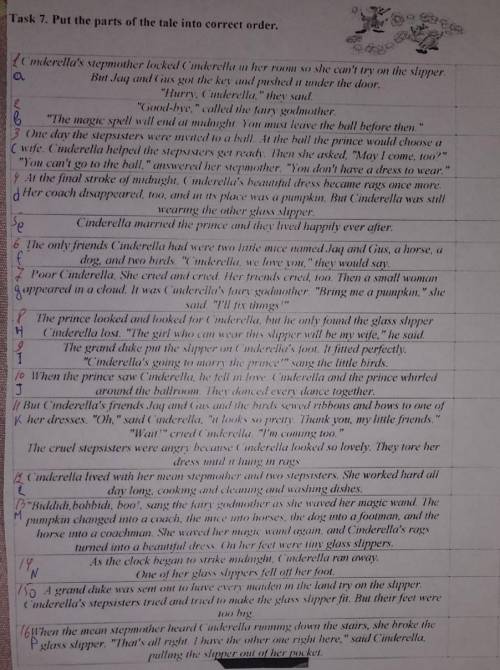 Task 7. Put the parts of the tale into correct order.
1 Cinderella's stepmother locked Cinderella in her room so she can't try on the slipper.
a But Jaq and Gus got the key and pushed it under the door.
"Hurry, Cinderella," they said.
2 "Good-bye," called the fairy godmother.
b "The magic spell will end at midnight. You must leave the ball before then."
3 One day the stepsisters were invited to a ball. At the ball the prince would choose a
c wife. Cinderella helped the stepsisters get ready. Then she asked, "May I come, too?"
"You can't go to the ball," answered her stepmother. "You don't have a dress to wear."
4 At the final stroke of midnight, Cinderella's beautiful dress became rags once more.
d Her coach disappeared, too, and in its place was a pumpkin. But Cinderella was still
wearing the other glass slipper.
5 e Cinderella married the prince and they lived happily ever after.
6 The only friends Cinderella had were two little mice named Jaq and Gus, a horse, a
f dog, and two birds. "Cinderella, we love you," they would say.
7 Poor Cinderella. She cried and cried. Her friends cried, too. Then a small woman
g appeared in a cloud. It was Cinderella's fairy godmother. "Bring me a pumpkin," she
said. "I'll fix things!"
8 The prince looked and looked for Cinderella, but he only found the glass slipper
H Cinderella lost. "The girl who can wear this slipper will be my wife," he said.
9 The grand duke put the slipper on Cinderella's foot. It fitted perfectly.
I "Cinderella's going to marry the prince!" sang the little birds.
10 When the prince saw Cinderella, he fell in love. Cinderella and the prince whirled
J around the ballroom. They danced every dance together.
11 But Cinderella's friends Jaq and Gus and the birds sewed ribbons and bows to one of
K her dresses. "Oh," said Cinderella, "it looks so pretty. Thank you, my little friends."
"Wait!" cried Cinderella. "I'm coming too."
The cruel stepsisters were angry because Cinderella looked so lovely. They tore her
dress until it hung in rags
12 Cinderella lived with her mean stepmother and two stepsisters. She worked hard all
L day long, cooking and cleaning and washing dishes.
13 "Biddidi,bobbidi, boo", sang the fairy godmother as she waved her magic wand. The
M pumpkin changed into a coach, the mice into horses, the dog into a footman, and the
horse into a coachman. She waved her magic wand again, and Cinderella's rags
turned into a beautiful dress. On her feet were tiny glass slippers.
14 As the clock began to strike midnight, Cinderella ran away.
N One of her glass slippers fell off her foot.
15 O A grand duke was sent out to have every maiden in the land try on the slipper.
Cinderella's stepsisters tried and tried to make the glass slipper fit. But their feet were
too big.
16 When the mean stepmother heard Cinderella running down the stairs, she broke the
P glass slipper. "That's all right. I have the other one right here," said Cinderella,
pulling the slipper out of her pocket.